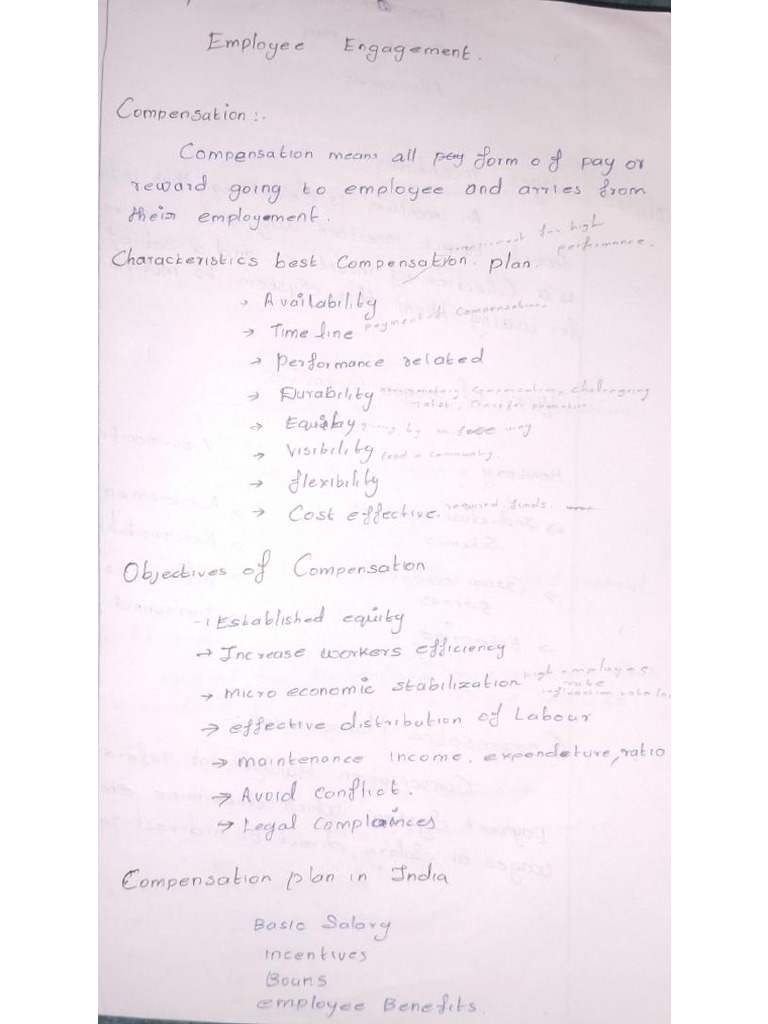 Employee Engagement.
Compensation :-
Compensation means all pay form of pay or
reward going to employee and arries from
their employement.
for high
performance.
Characteristics best Compensation plan.
Availability
→ Time line payment of compensation.
→ Performance related
→ Durability
→ Equity
→ Visibility
→ flexibility
→ Cost effective. required funds.
Objectives of Compensation
Established equity
→ Increase workers efficiency
→ micro economic stabilization high employee
rate
→ effective distribution of Labour
→ maintenance income, expendeture, ratio
→ Avoid conflict.
→ Legal complainces
Compensation plan in India
Basic Salary
incentives
Bouns
employee Benefits.